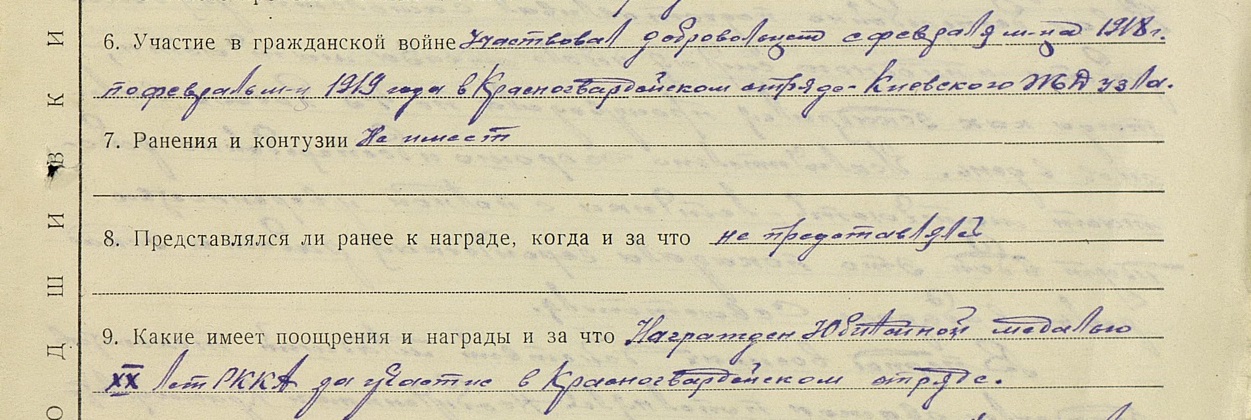 6. Участие в гражданской войне Участвовал добровольцем с февраля м-ца 1918 г.
по февраль м-ц 1919 года в Красногвардейском отряде Киевского ЖД узла.
7. Ранения и контузии Не имеет
8. Представлялся ли ранее к награде, когда и за что не представлялся
9. Какие имеет поощрения и награды и за что Награжден Юбилейной медалью
XX лет РККА за участие в Красногвардейском отряде.
ПОДШИВКИ